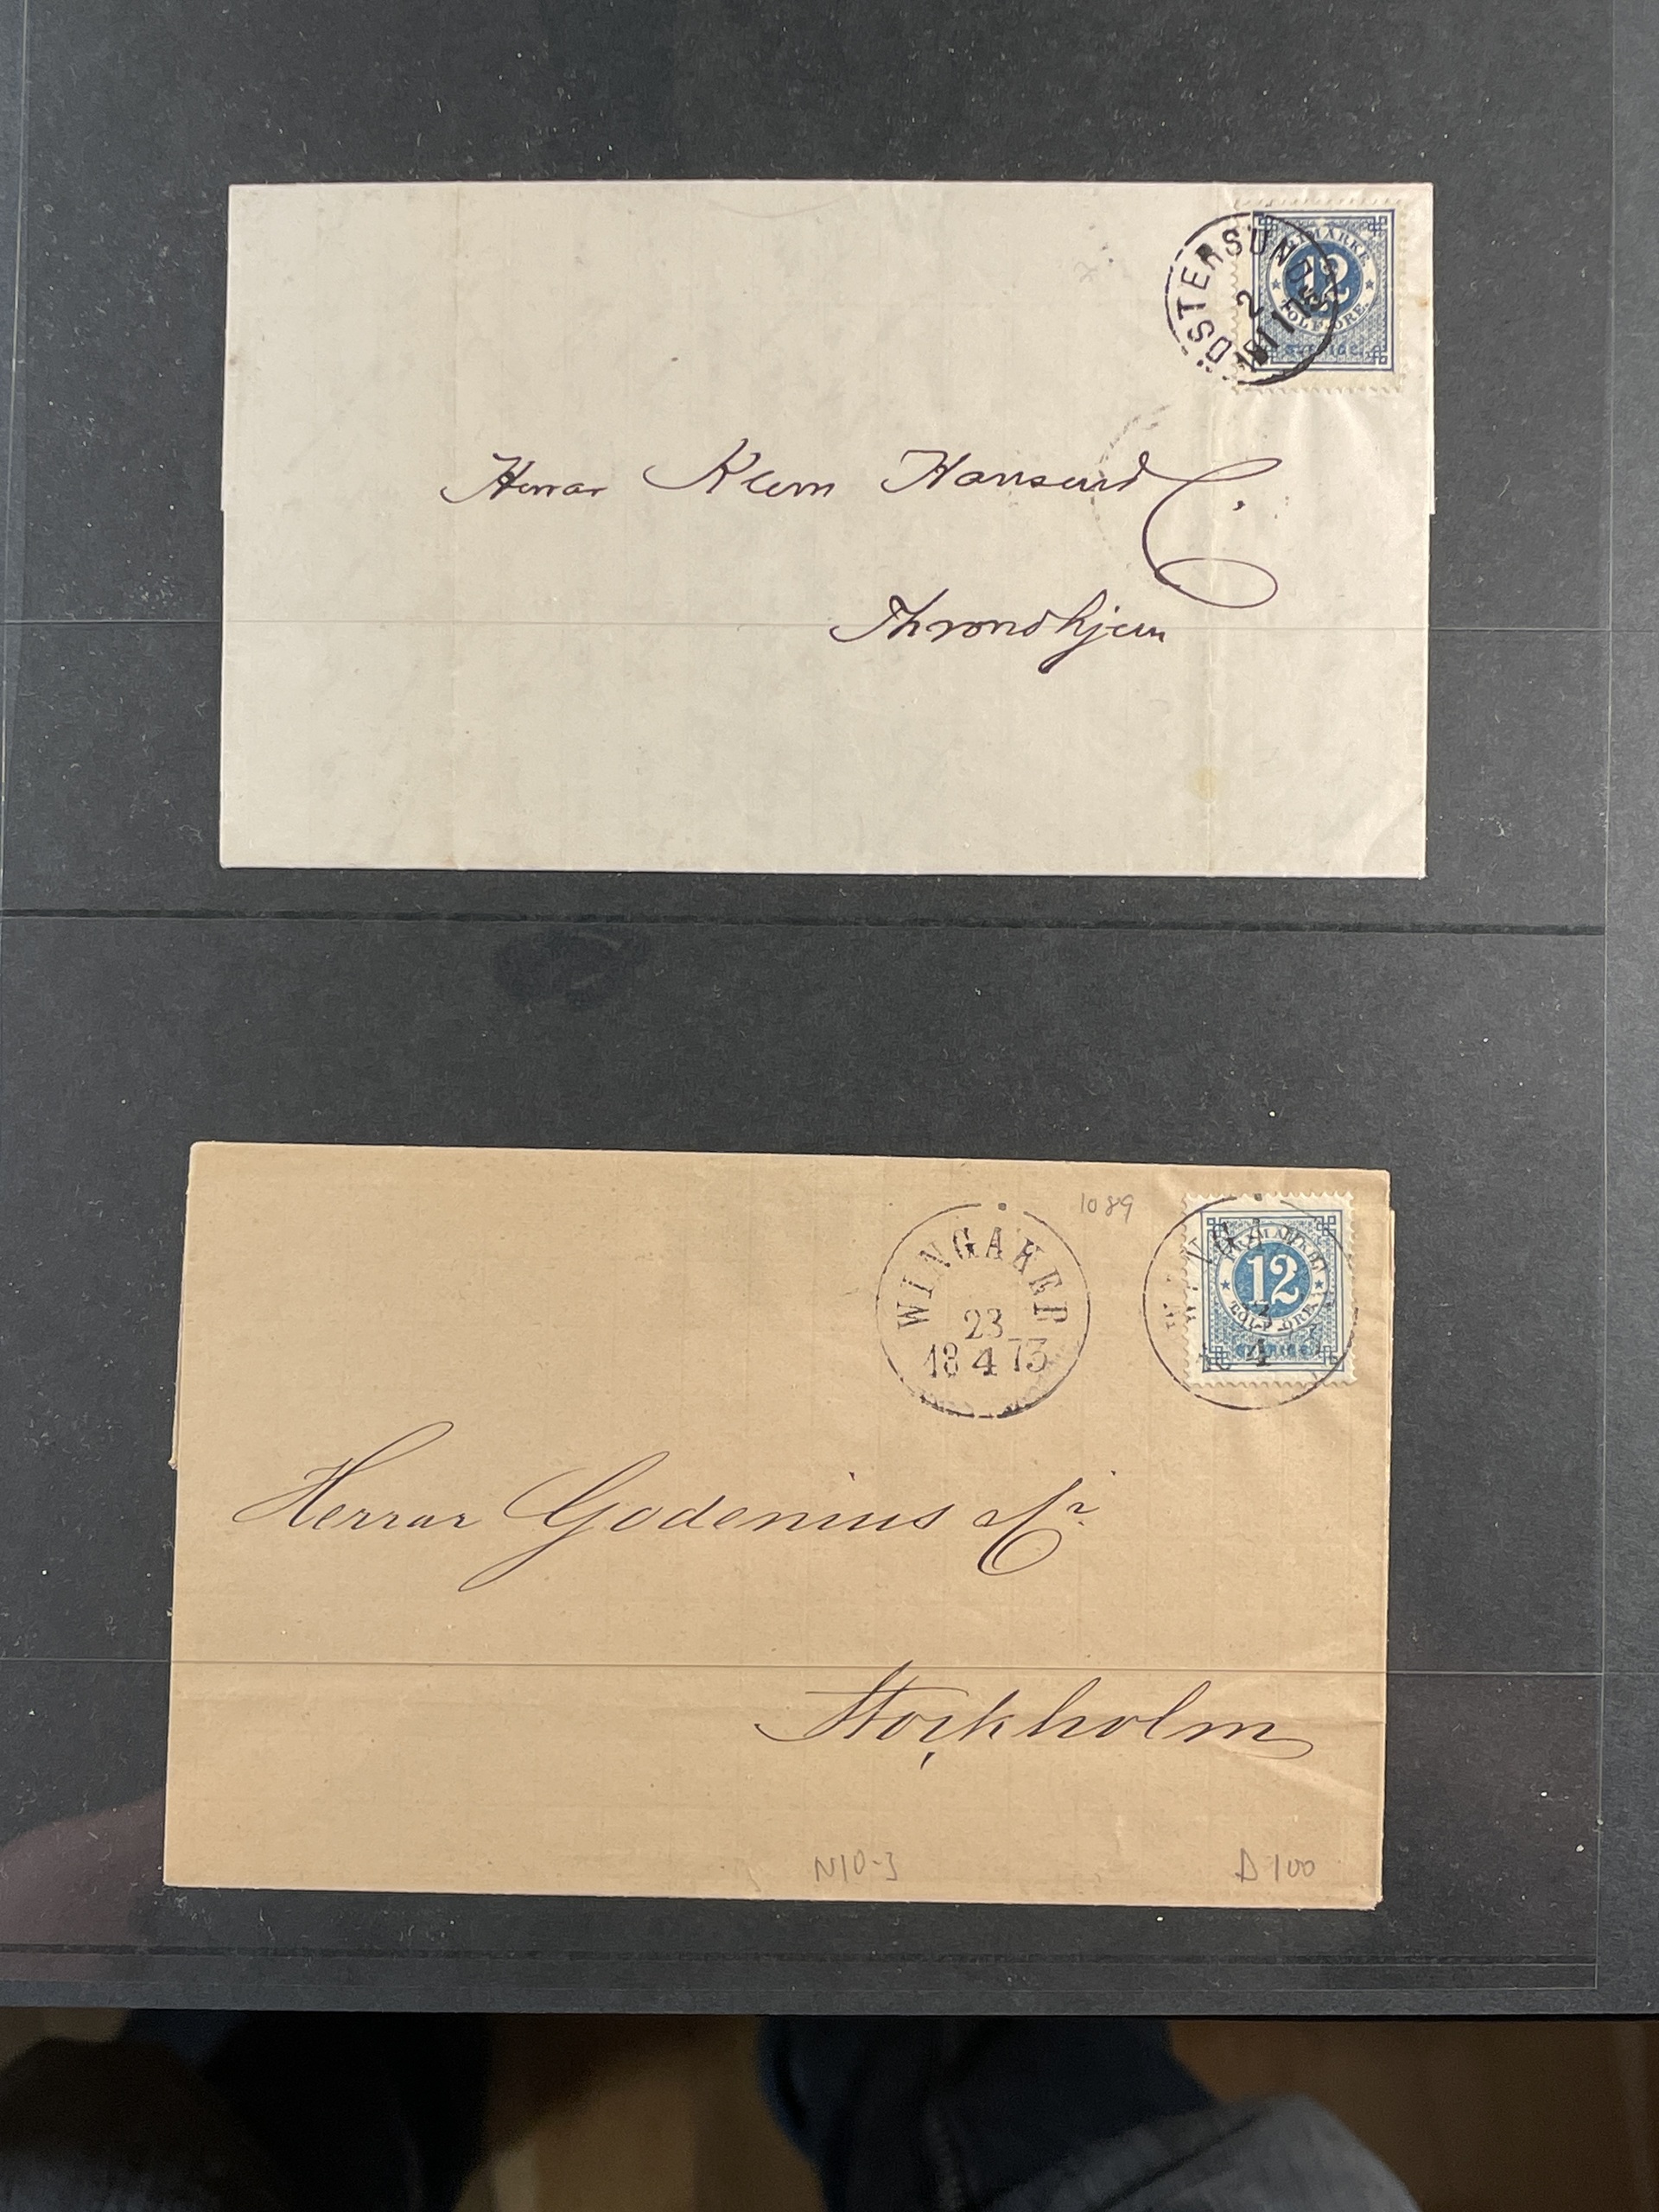 ÖSTERSUND
2
FRIMÄRKE
12
TOLF ÖRE
SVERIGE
Herrar Klem Hansen & C.
Throndhjem
1089
WINGÅKER
23
18 4 73
FRIMÄRKE
12
TOLF ÖRE
SVERIGE
Herrar Godenius & Cᵒ.
Stockholm
N10-3
A 100